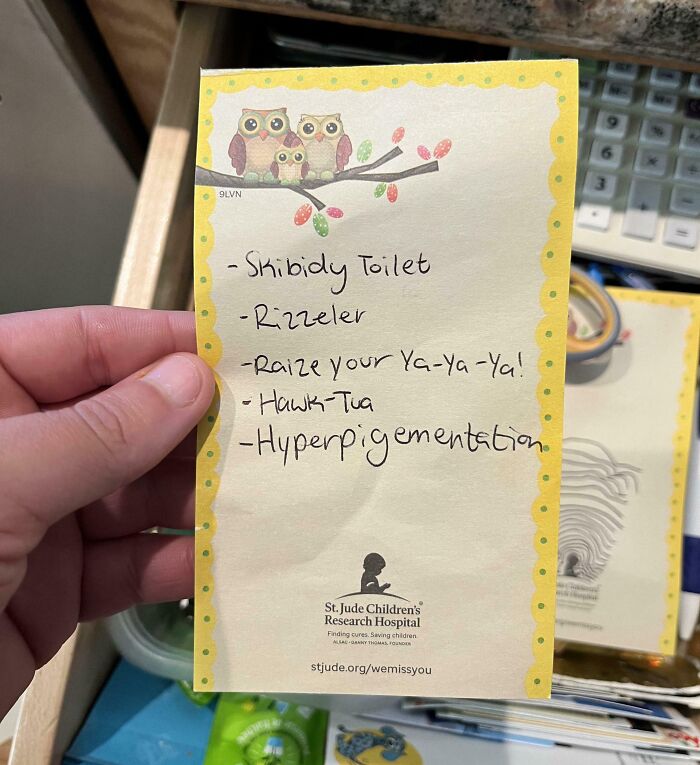 9LVN
- Skibidy Toilet
- Rizzeler
- Raize your Ya-Ya-Ya!
- Hawk-Tua
- Hyperpigementation
St. Jude Children's®
Research Hospital
Finding cures. Saving children.
ALSAC • DANNY THOMAS, FOUNDER
stjude.org/wemissyou
9
6
3